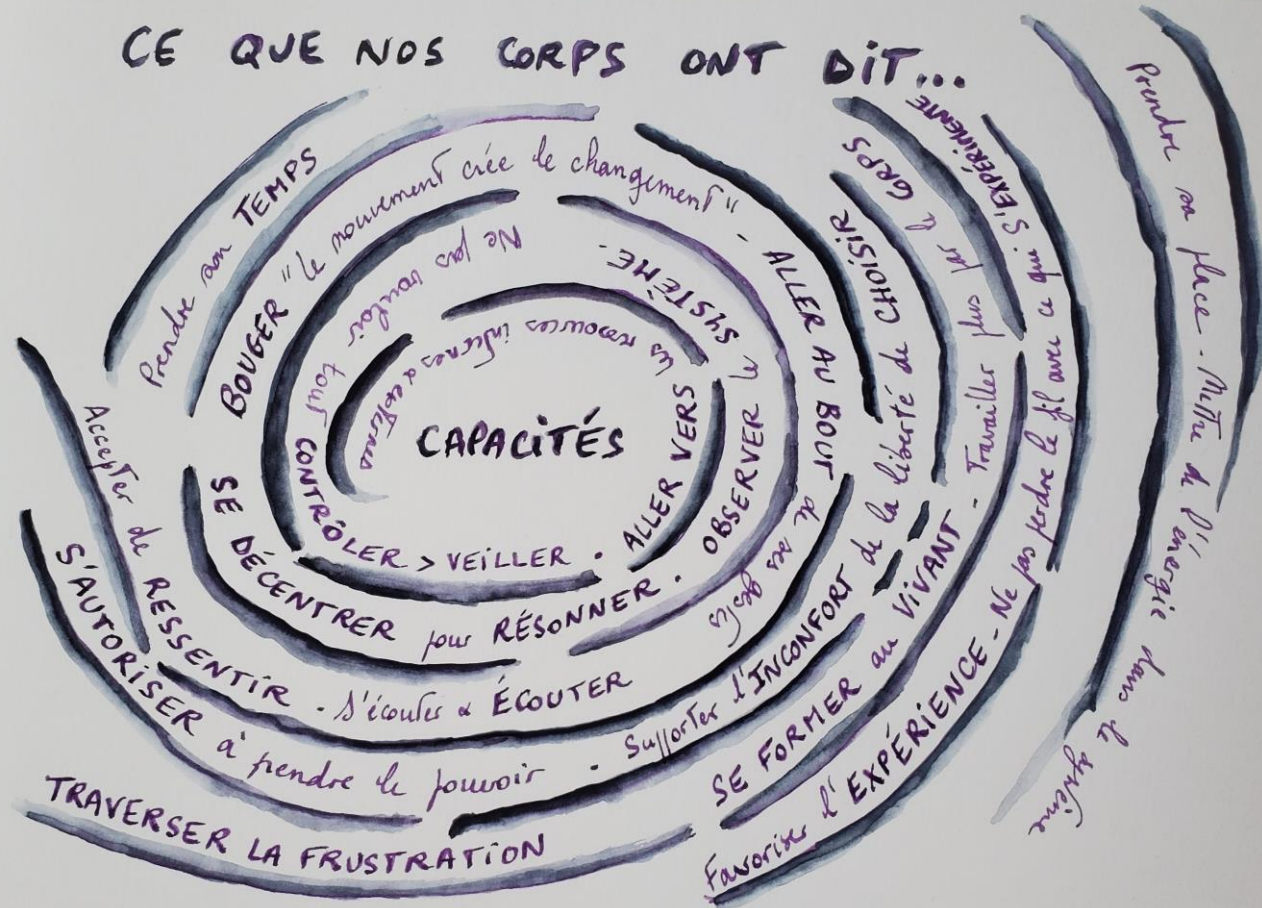 CE QUE NOS CORPS ONT DIT...
CAPACITÉS
Ne pas vouloir tout CONTRÔLER > VEILLER . ALLER VERS les ressources internes & externes
SE DÉCENTRER pour RÉSONNER . OBSERVER SYSTÈME.
BOUGER "le mouvement crée le changement" - ALLER AU BOUT de ses gestes
Prendre son TEMPS
Accepter de RESSENTIR . S'écouter & ÉCOUTER
S'AUTORISER à prendre le pouvoir . Supporter l'INCONFORT de la liberté de CHOISIR
TRAVERSER LA FRUSTRATION
SE FORMER au VIVANT - Travailler plus par le CORPS
Favoriser l'EXPÉRIENCE - Ne pas perdre le fil avec ce qui S'EXPÉRIMENTE
Prendre sa place . Mettre de l'énergie dans le système